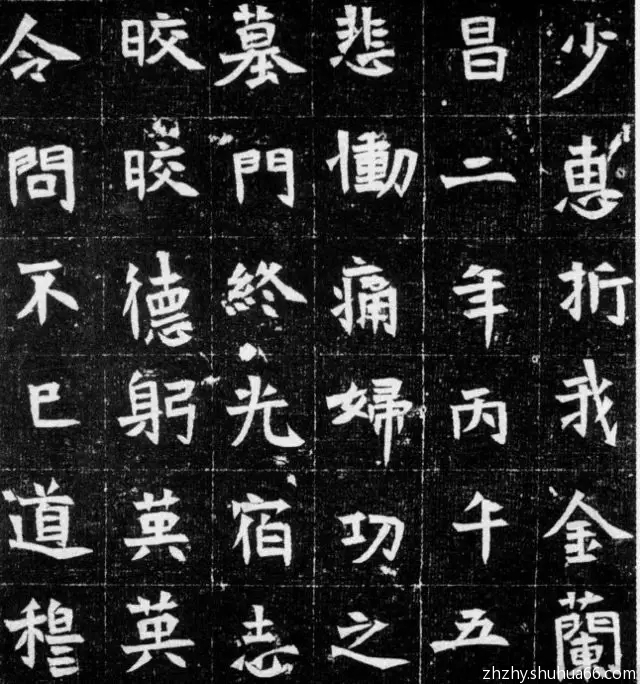 少惠折我金蘭
昌二年丙午五
悲慟痛婦功之
墓門終光宿志
晈晈德躬英英
令問不已道穆
zhzhy.shuhua66.com